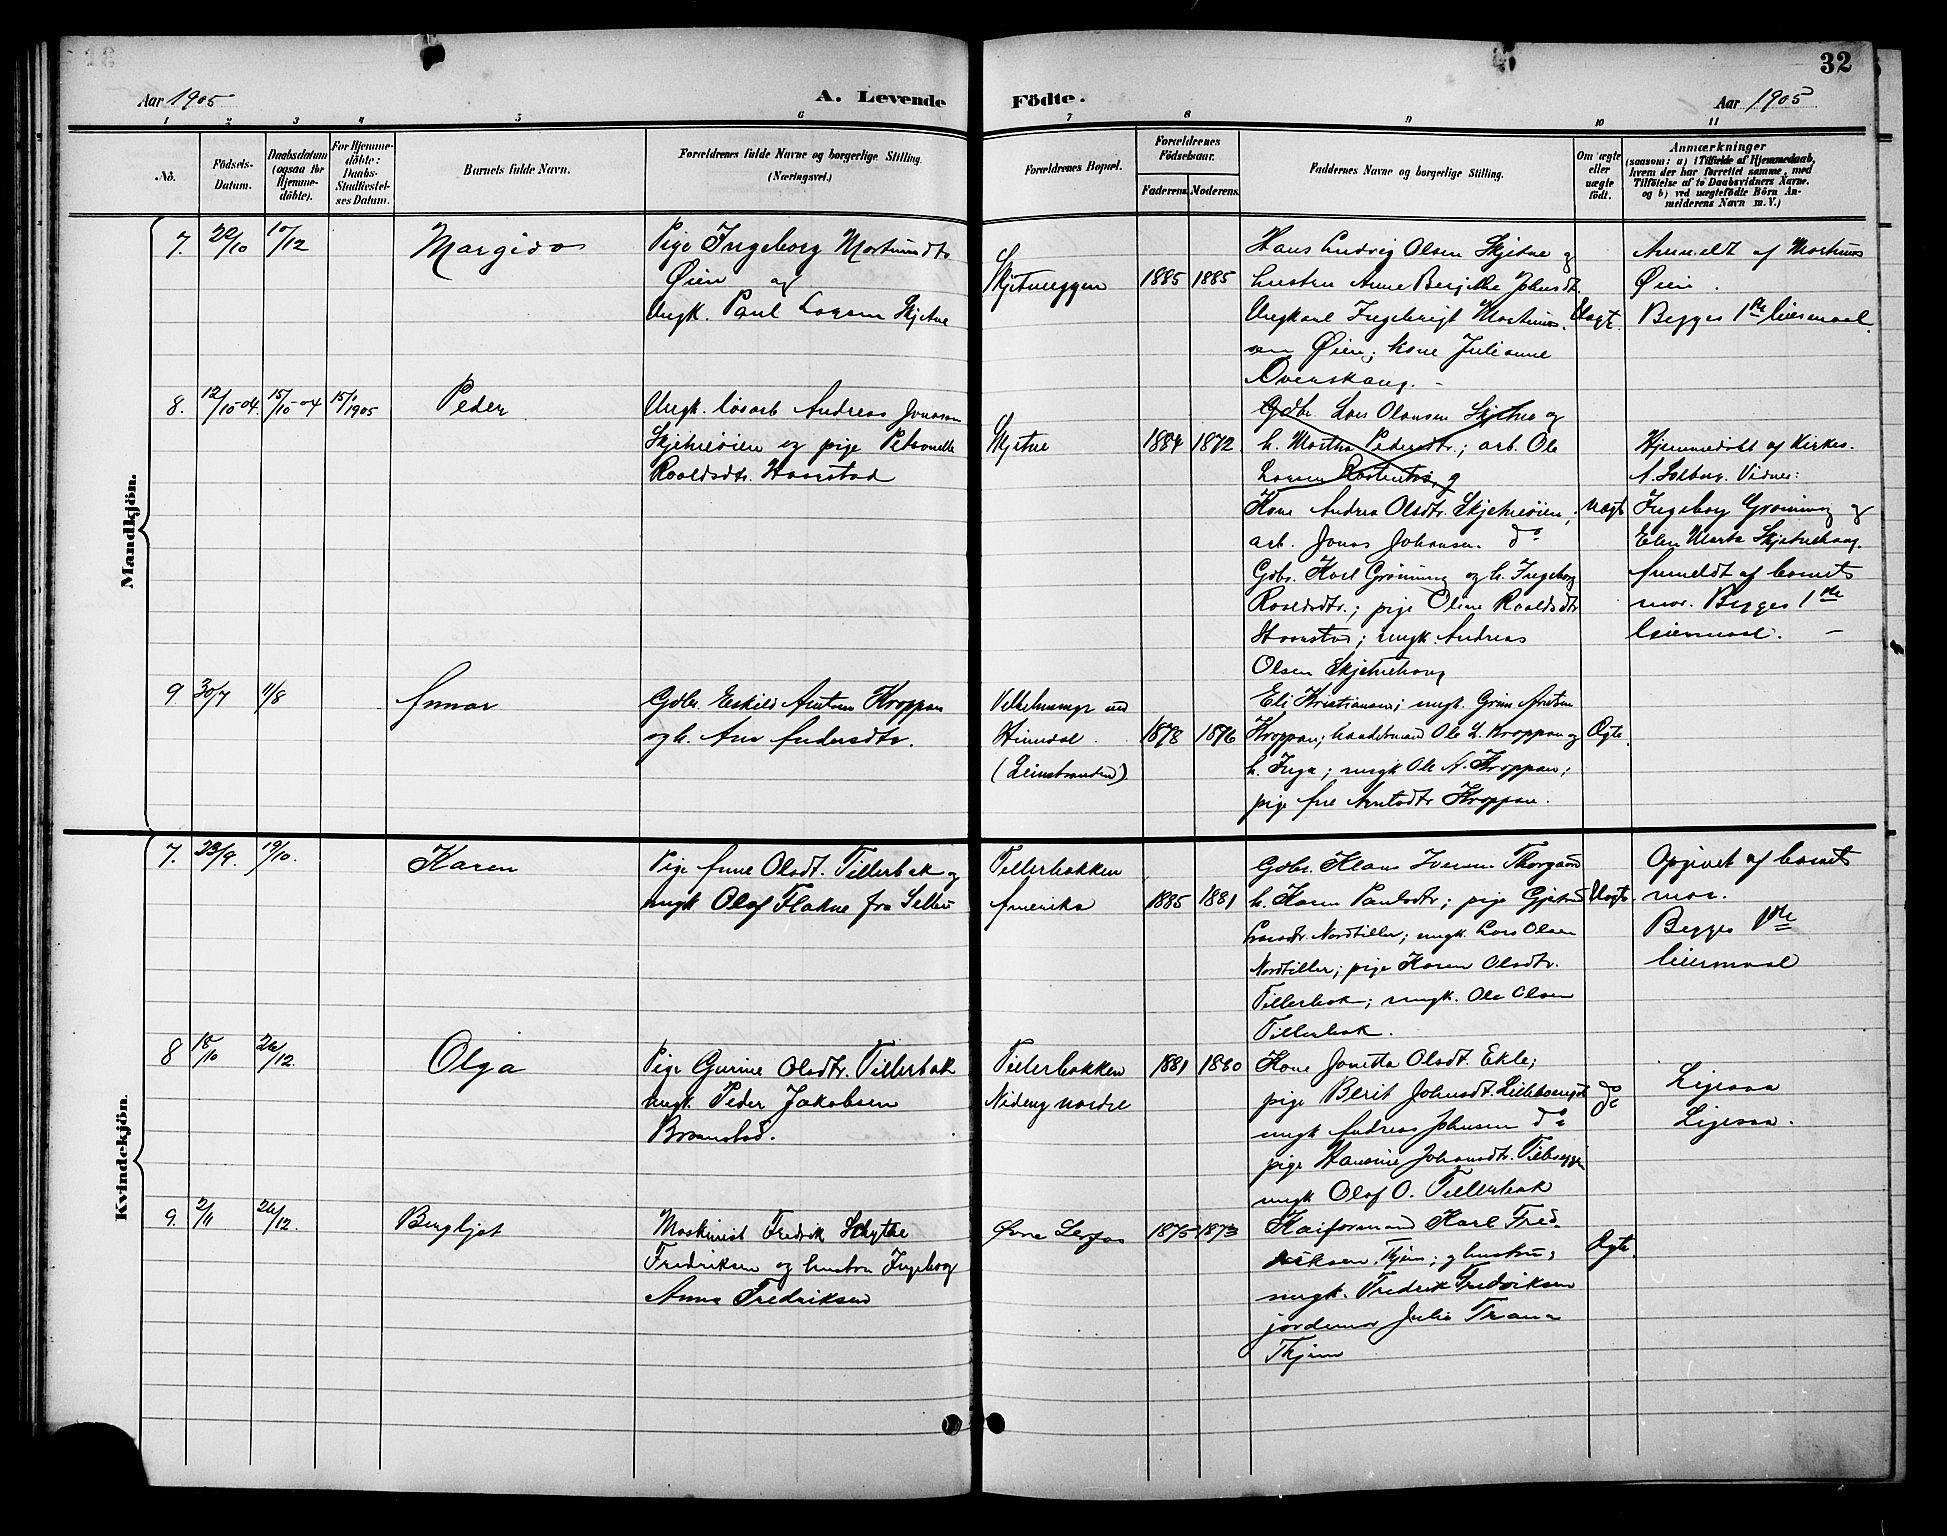 32
Aar 1905
A. Levende
Födte.
Aar 1905
1 2 3 4 5 6 7 8 9 10 11
No.
Födsels-
Datum.
Daabsdatum
(ogsaa for
Hjemme-
döbte).
For Hjemme-
döbte:
Daabs-
Stadfæstel-
ses Datum.
Barnets fulde Navn.
Forældrenes fulde Navne og borgerlige Stilling.
(Næringsvei.)
Forældrenes Bopæl.
Forældrenes
Födselsaar.
Faderens. Moderens.
Faddernes Navne og borgerlige Stilling.
Om ægte
eller
uægte
födt.
Anmærkninger
(saasom: a) i Tilfælde af Hjemmedaab,
hvem der har forrettet samme, med
Tilföielse af to Daabsvidners Navne.
og b) ved uægtefödte Börn An-
melderens Navn m. V.)
Mandkjön.
7. 20/10 10/12
Margido
Pige Ingeborg Mortinusdtr
Øien og
Ungk. Paul Larsen Skjetne
Skjetneeggen
1885 1885
Hans Ludvig Olsen Skjetne og
hustru Anne Bergitte Johnsdt.
Ungkarl Ingebrigt Mortinus-
sen Øien; kone Julianne
Uægte
Anmeldt af Mortinus
Øien.
Begges 1ste leiermaal.
8. 12/10-04. 15/10-04 15/1 1905
Peder
Ungk. løsarb Andreas Jonasen
Skjetneøien og pige Petronelle
Roaldsdtr. Haarstad
Skjetne
1884 1872.
Gdbr. Lars Olausen Skjetne og
h. Martha Pedersdtr.; arb. Ole
Larsen Rostentrø, og
Kone Andrea Olsdtr. Skjetneøien;
arb. Jonas Johansen do
Gdbr. Karl Grønning og h. Ingeborg
Roaldsdtr.; pige Oline Roaldsdtr
Haarstad; ungk. Andreas
Olsen Skjetnehaug
Uægte
Hjemmedøbt af Kirkes.
A. Solberg. Vidner:
Ingeborg Grønning og
Elen Marta Skjetnehaug.
Anmeldt af barnets
mor. Begges 1ste
leiermaal. —
9 30/7 11/8
Annar
Gdbr. Eskild Arntsen Kroppan
og h. Ane Andersdtr.
Heimdal.
(Leinstranden)
1878 1876
Eli Kristiansen; ungk. Grim Arntsen
Kroppan; handelsmand Ole L. Kroppan og
h. Inga; ungk Ole A. Kroppan;
pige Ane Arntsdtr Kroppan.
Ægte.
Kvindekjön.
7. 23/9. 19/10.
Karen
Pige Anne Olsdt. Tillerbak og
ungk Olaf Flakne fra Selbu
Tillerbakken
Amerika
1885 1881
Gdbr. Klaus Iversen Thorgaard
h. Karen Paulsdtr; pige Gjertrud
Larsdtr. Nordtiller; ungk. Lars Olsen
Nordtiller; pige Karen Olsdtr.
Tillerbak; ungk. Ole Olsen
Tillerbak.
Uægte.
Opgivet af barnets
mor.
Begges 1ste
leiermaal
8 18/10 26/12.
Olga
Pige Gurine Olsdtr. Tillerbak
ungk. Peder Jakobsen
Braanstad.
Tillerbakken
Nideng nordre
1881 1880
Kone Jonetta Olsdt. Ekle;
pige Berit Johnsdt. Lillebaugs
ungk Andreas Johnsen do
pige Hansine Johansdtr. Tillereggen
ungk Olaf O. Tillerbak
do
do
Ligesaa
Ligesaa.
9. 2/11 26/12.
Bergljot
Maskinist Fredrik Schytte
Fredriksen og hustru Ingeborg
Anna Fredriksen
Øvre Lerfos
1875 1873
Kaiformand Karl Fred-
riksen, Thjem; og hustru;
ungk. Fredrik Fredriksen
jordemor Julie Trana
Thjem
Ægte